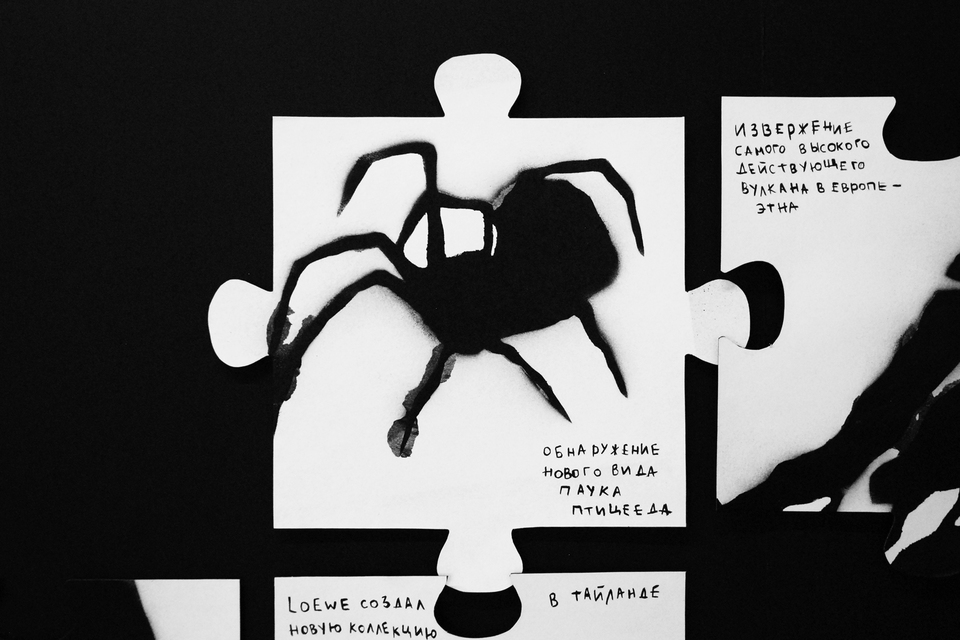 ОБНАРУЖЕНИЕ
НОВОГО ВИДА
ПАУКА
ПТИЦЕЕДА
ИЗВЕРЖЕНИЕ
САМОГО ВЫСОКОГО
ДЕЙСТВУЮЩЕГО
ВУЛКАНА В ЕВРОПЕ –
ЭТНА
LOEWE СОЗДАЛ
НОВУЮ КОЛЛЕКЦИЮ
В ТАЙЛАНДЕ